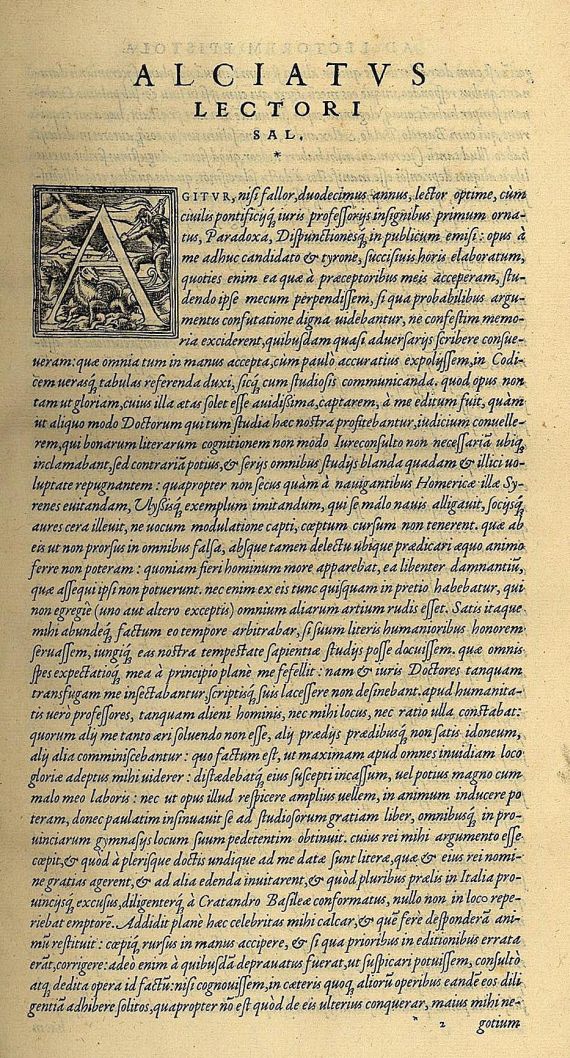 ALCIATVS
LECTORI
SAL.
*
AGITVR, nisi fallor, duodecimus annus, lector optime, cùm
ciuilis pontificijq́; iuris professorijs insignibus primum orna-
tus, Paradoxa, Dispunctionesq́; in publicum emisi: opus à
me adhuc candidato & tyrone, succisiuis horis elaboratum,
quoties enim ea quæ à præceptoribus meis acceperam, stu-
dendo ipse mecum perpendissem, si qua probabilibus argu-
mentis confutatione digna uidebantur, ne confestim memo-
ria exciderent, quibusdam quasi aduersarijs scribere consue-
ueram: quæ omnia tum in manus accepta, cùm paulò accuratius expolyssem, in Codi-
cem uerasq́; tabulas referenda duxi, sicq́; cum studiosis communicanda. quod opus non
tam ut gloriam, cuius illa ætas solet esse auidißima, captarem, à me editum fuit, quàm
ut aliquo modo Doctorum qui tum studia hæc nostra profitebantur, iudicium conuelle-
rem, qui bonarum literarum cognitionem non modò Iureconsulto non necessariã ubiq́;
inclamabant, sed contrariã potius, & serijs omnibus studijs blanda quadam & illici uo-
luptate repugnantem: quapropter non secus quàm à nauigantibus Homericæ illæ Sy-
renes euitandam, Ulyssisq́; exemplum imitandum, qui se malo nauis alligauit, socijsq́;
aures cera illeuit, ne uocum modulatione capti, cœptum cursum non tenerent. quæ ab
eis ut non prorsus in omnibus falsa, absque tamen delectu ubique prædicari æquo animo
ferre non poteram: quoniam fieri hominum more apparebat, ea libenter damnantiũ,
quæ assequi ipsi non potuerunt. nec enim ex eis tunc quisquam in pretio habebatur, qui
non egregiè (uno aut altero exceptis) omnium aliarum artium rudis esset. Satis itaque
mihi abundeq́; factum eo tempore arbitrabar, si suum literis humanioribus honorem
seruassem, iungiq́; eas nostra tempestate sapientiæ studijs posse docuissem. quæ omnis
spes expectatioq́; mea à principio planè me fefellit: nam & iuris Doctores tanquam
transfugam me insectabantur, scriptisq́; suis lacessere non desinebant. apud humanita-
tis uerò professores, tanquam alieni hominis, nec mihi locus, nec ratio ulla constabat:
quorum alij me tanto æri soluendo non esse, alij prædijs prædibusq́; non satis idoneum,
alij alia comminiscebantur: quo factum est, ut maximam apud omnes inuidiam loco
gloriæ adeptus mihi uiderer: distædebatq́; eius suscepti incassum, uel potius magno cum
malo meo laboris: nec ut opus illud respicere amplius uellem, in animum inducere po
teram, donec paulatim insinuauit se ad studiosorum gratiam liber, omnibusq́; in pro-
uinciarum gymnasijs locum suum pedetentim obtinuit. cuius rei mihi argumento esse
cœpit, & quòd à plerisque doctis undique ad me datæ sunt literæ, quæ & eius rei nomi-
ne gratias agerent, & ad alia edenda inuitarent, & quòd pluribus prælis in Italia pro-
uincijsq́; excusus, diligenterq́; à Cratandro Basileæ conformatus, nullo non in loco repe-
riebat emptorẽ. Addidit planè hæc celebritas mihi calcar, & quẽ ferè desponderã ani-
mũ restituit: cœpiq́; rursus in manus accipere, & si qua prioribus in editionibus errata
erãt, corrigere: adeò enim à quibusdã deprauatus fuerat, ut suspicari potuissem, consultò
atq́; dedita opera id factũ: nisi cognouissem, in cæteris quoq́; aliorũ operibus eandẽ eos dili
gentiã adhibere solitos, quapropter nõ est quòd de eis ulterius conquerar, maius mihi ne-
* 2 gotium